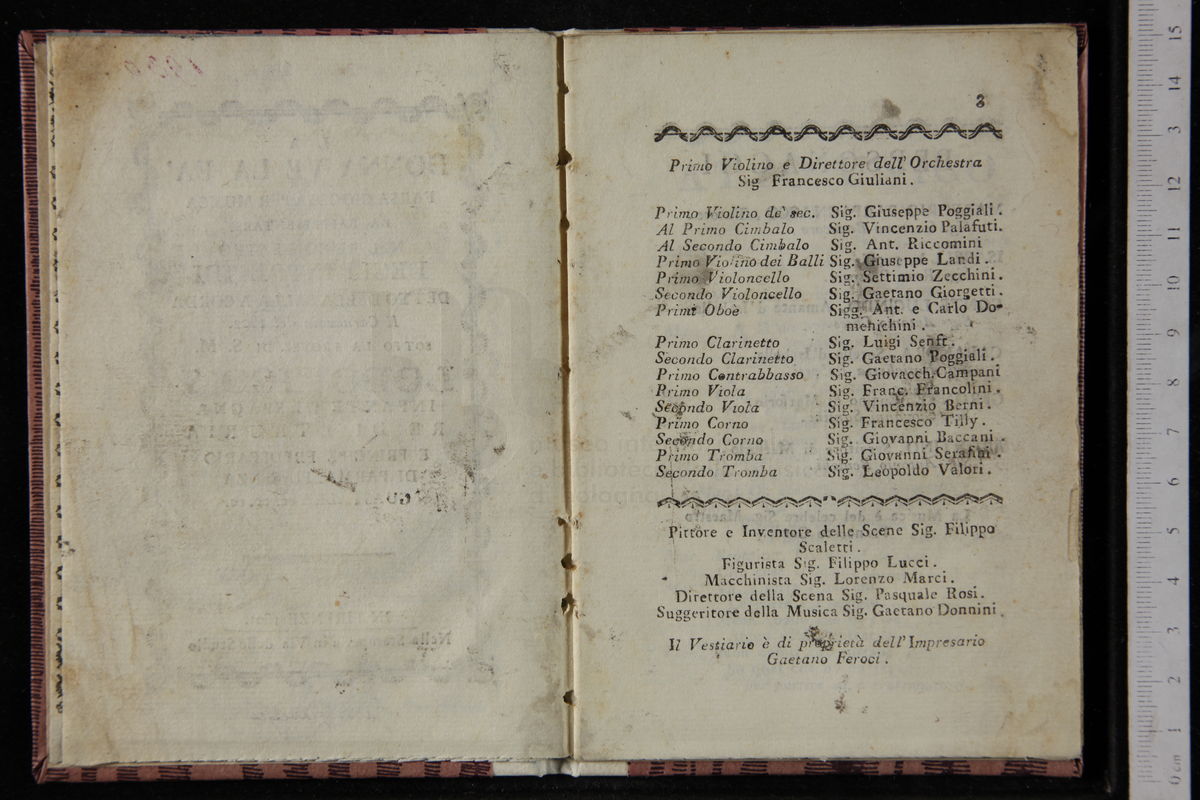 3
Primo Violino e Direttore dell' Orchestra
Sig Francesco Giuliani.
Primo Violino de' sec. Sig. Giuseppe Poggiali.
Al Primo Cimbalo Sig. Vincenzio Palafuti.
Al Secondo Cimbalo Sig. Ant. Riccomini
Primo Violino dei Balli Sig. Giuseppe Landi.
Primo Violoncello Sig. Settimio Zecchini.
Secondo Violoncello Sig. Gaetano Giorgetti.
Primi Oboe Sigg. Ant. e Carlo Do-
menichini.
Primo Clarinetto Sig. Luigi Senft.
Secondo Clarinetto Sig. Gaetano Poggiali.
Primo Contrabbasso Sig. Giovacch. Campani
Primo Viola Sig. Franc. Francolini.
Secondo Viola Sig. Vincenzio Berni.
Primo Corno Sig. Francesco Tilly.
Secondo Corno Sig. Giovanni Baccani.
Primo Tromba Sig. Giovanni Serafini.
Secondo Tromba Sig. Leopoldo Valori.
Pittore e Inventore delle Scene Sig. Filippo
Scaletti.
Figurista Sig. Filippo Lucci.
Macchinista Sig. Lorenzo Marci.
Direttore della Scena Sig. Pasquale Rosi.
Suggeritore della Musica Sig. Gaetano Donnini.
Il Vestiario è di proprietà dell' Impresario
Gaetano Feroci.
15
14
13
12
11
10
9
8
7
6
5
4
3
2
1
0 cm